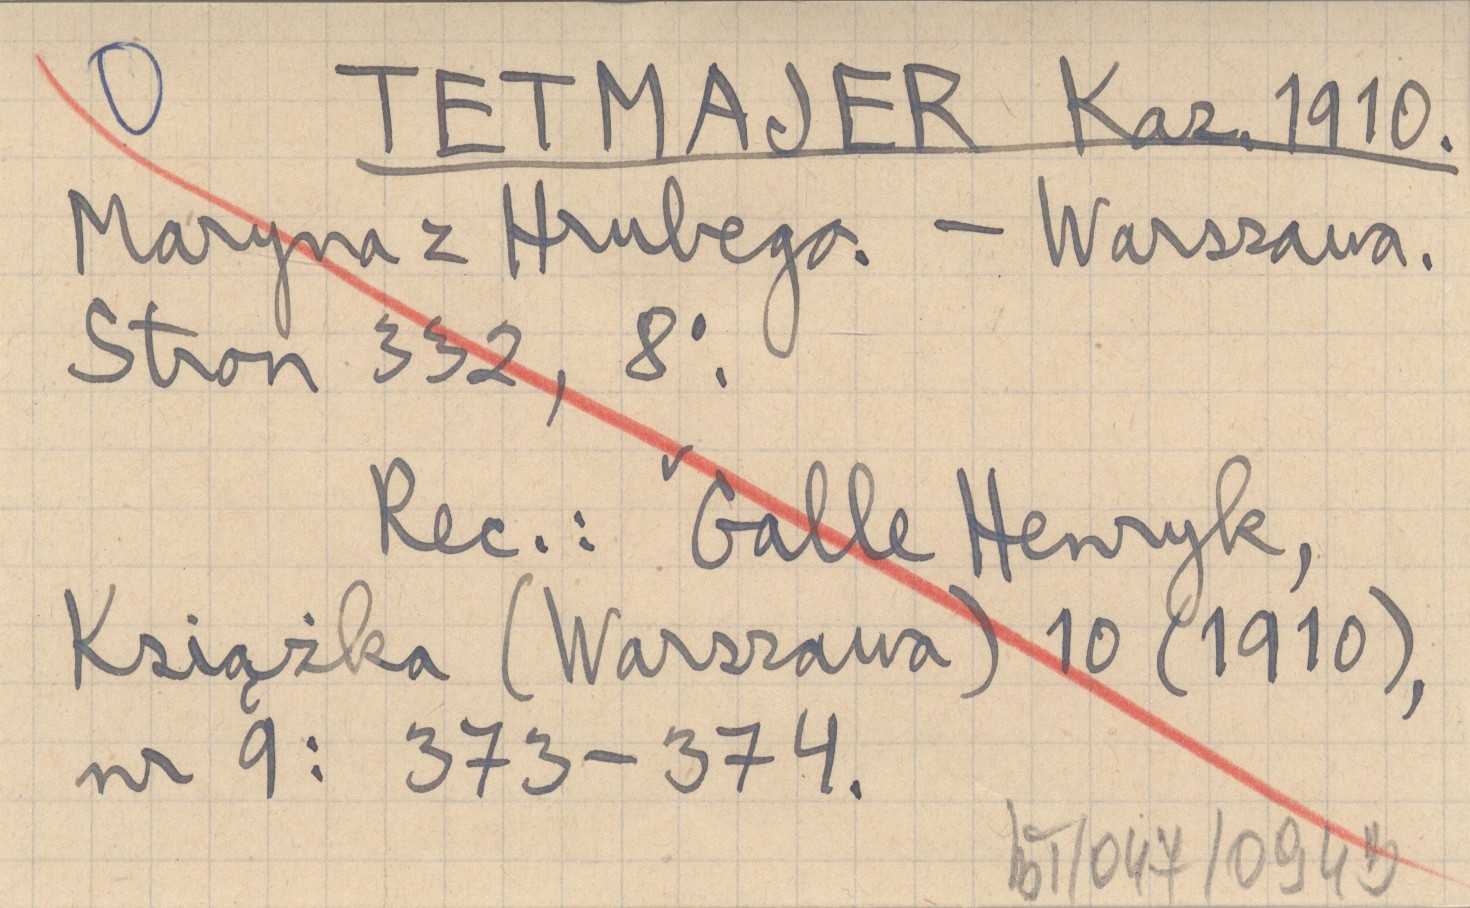 O TETMAJER Kaz. 1910.
Maryna z Hrubego. – Warszawa.
Stron 332, 8°.
Rec.: Galle Henryk,
Książka (Warszawa) 10 (1910),
nr 9: 373–374.
/047/094